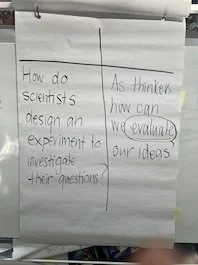 How do
scientists
design an
experiment to
investigate
their questions?
As thinkers
how can
we evaluate
our ideas?